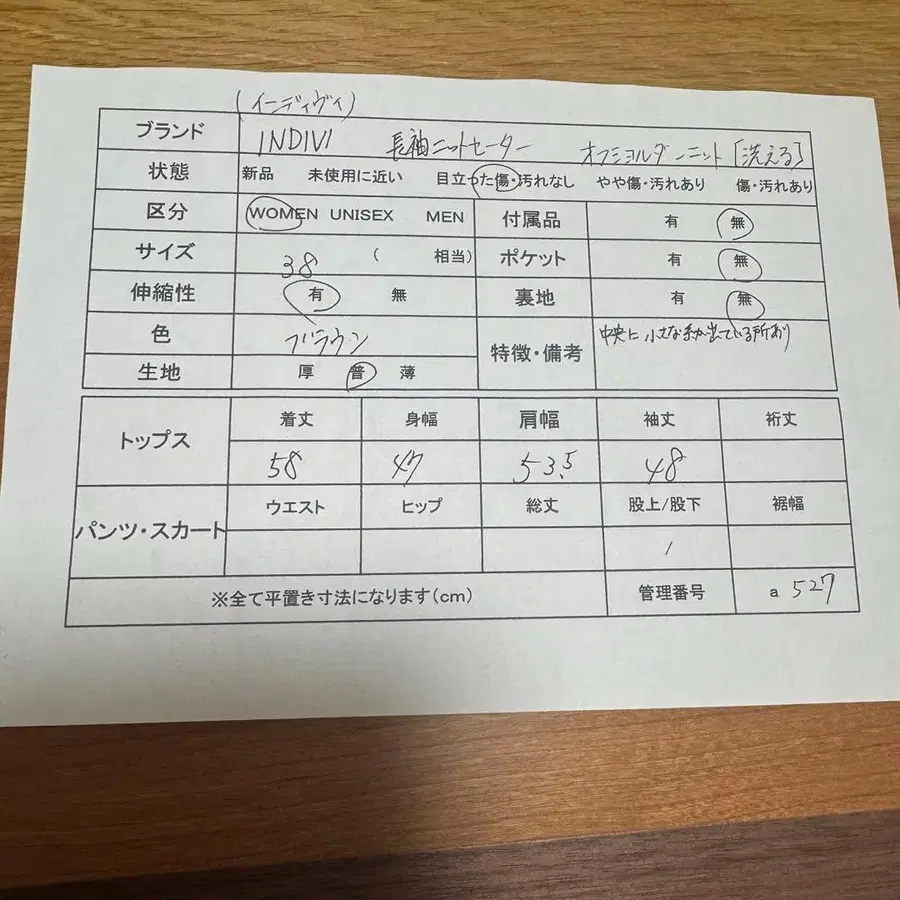 (インディヴィ)
ブランド INDIVI 長袖ニットセーター オフショルダーニット [洗える]
状態 新品 未使用に近い 目立った傷・汚れなし やや傷・汚れあり 傷・汚れあり
区分 WOMEN UNISEX MEN 付属品 有 無
サイズ 38 ( 相当) ポケット 有 無
伸縮性 有 無 裏地 有 無
色 ブラウン 特徴・備考 中央に小さな糸が出ている所あり
生地 厚 普 薄
トップス 着丈 身幅 肩幅 袖丈 裄丈
58 47 53.5 48
パンツ・スカート ウエスト ヒップ 総丈 股上/股下 裾幅
/
※全て平置き寸法になります(cm) 管理番号 a 527